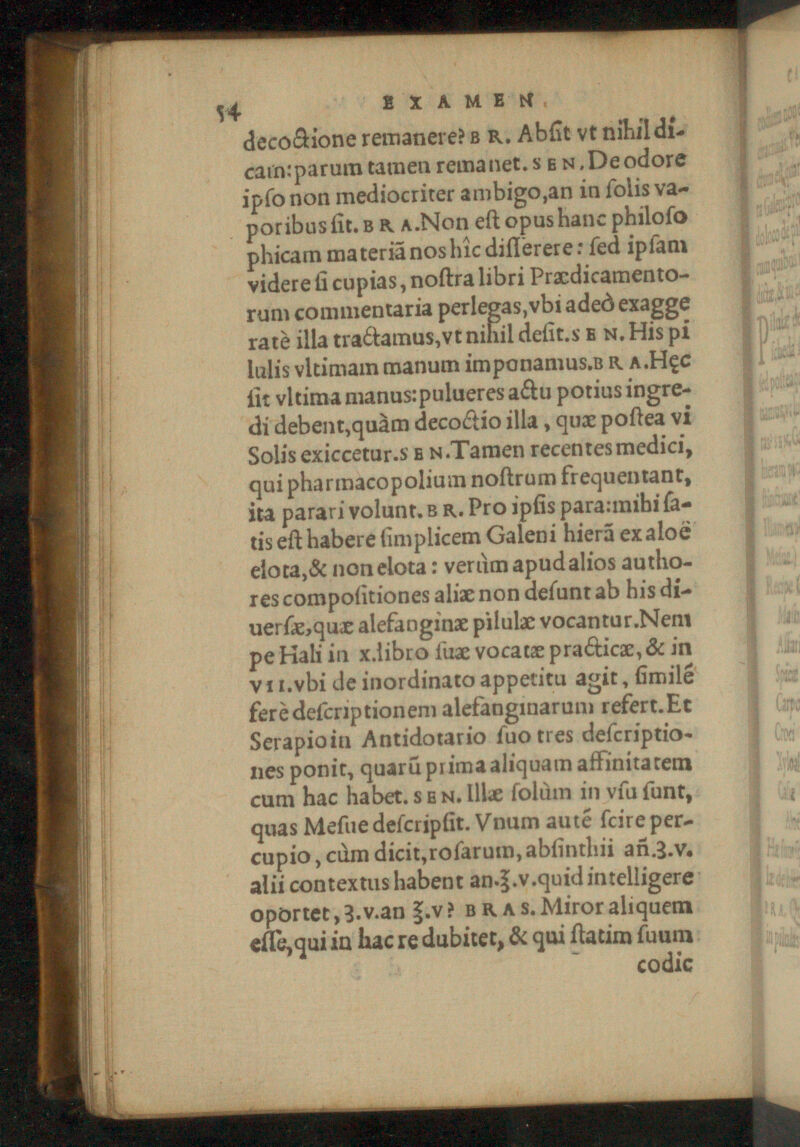 54 EXAMEN.
decoctione remanere? B R. Absit vt nihil di-
cam: parum tamen remanet. S E N. De odore
ipso non mediocriter ambigo, an in solis va-
poribus sit. B R A. Non est opus hanc philoso
phicam materiã nos hîc disserere: sed ipsam
videre si cupias, nostra libri Prædicamento-
rum commentaria perlegas, vbi adeò exagge
ratè illa tractamus, vt nihil desit. S E N. His pi
lulis vltimam manum imponamus. B R A. Hęc
sit vltima manus: pulueres actu potius ingre-
di debent, quàm decoctio illa, quæ postea vi
Solis exiccetur. S E N. Tamen recentes medici,
qui pharmacopolium nostrum frequentant,
ita parari volunt. B R. Pro ipsis para: mihi sa-
tis est habere simplicem Galeni hierã ex aloë
elota, & non elota: verùm apud alios autho-
res compositiones aliæ non desunt ab his di-
uersæ, quæ alefanginæ pilulæ vocantur. Nem
pe Hali in x. libro suæ vocatæ practicæ, & in
VII. vbi de inordinato appetitu agit, similẽ
ferè descriptionem alefanginarum refert. Et
Serapio in Antidotario suo tres descriptio-
nes ponit, quarũ prima aliquam affinitatem
cum hac habet. S E N. Illæ solùm in vsu sunt,
quas Mesue descripsit. Vnum autẽ scire per-
cupio, cùm dicit, rosarum, absinthii añ.ʒ.v.
alii contextus habent an.℥.v. quid intelligere
oportet, ʒ.v. an ℥.v? B R A S. Miror aliquem
esse, qui in hac re dubitet, & qui statim suum
codic